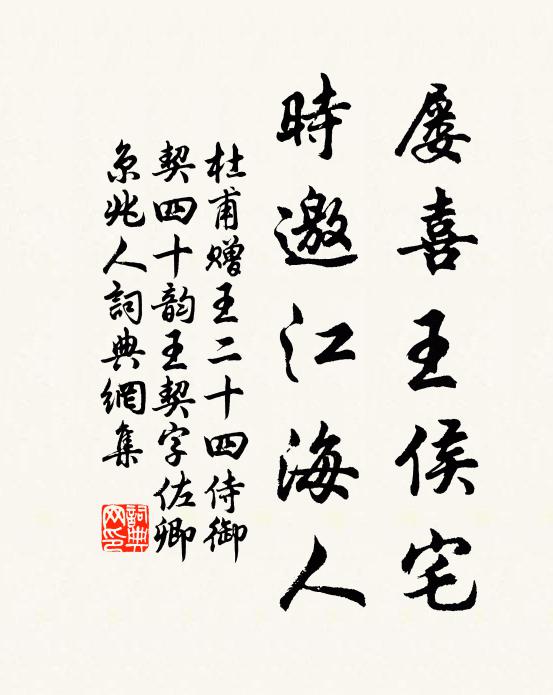 屡喜王侯宅
時邀江海人
杜甫赠王二十四侍御
契四十韵王契字佐卿
京兆人詞典網集
詞典网印